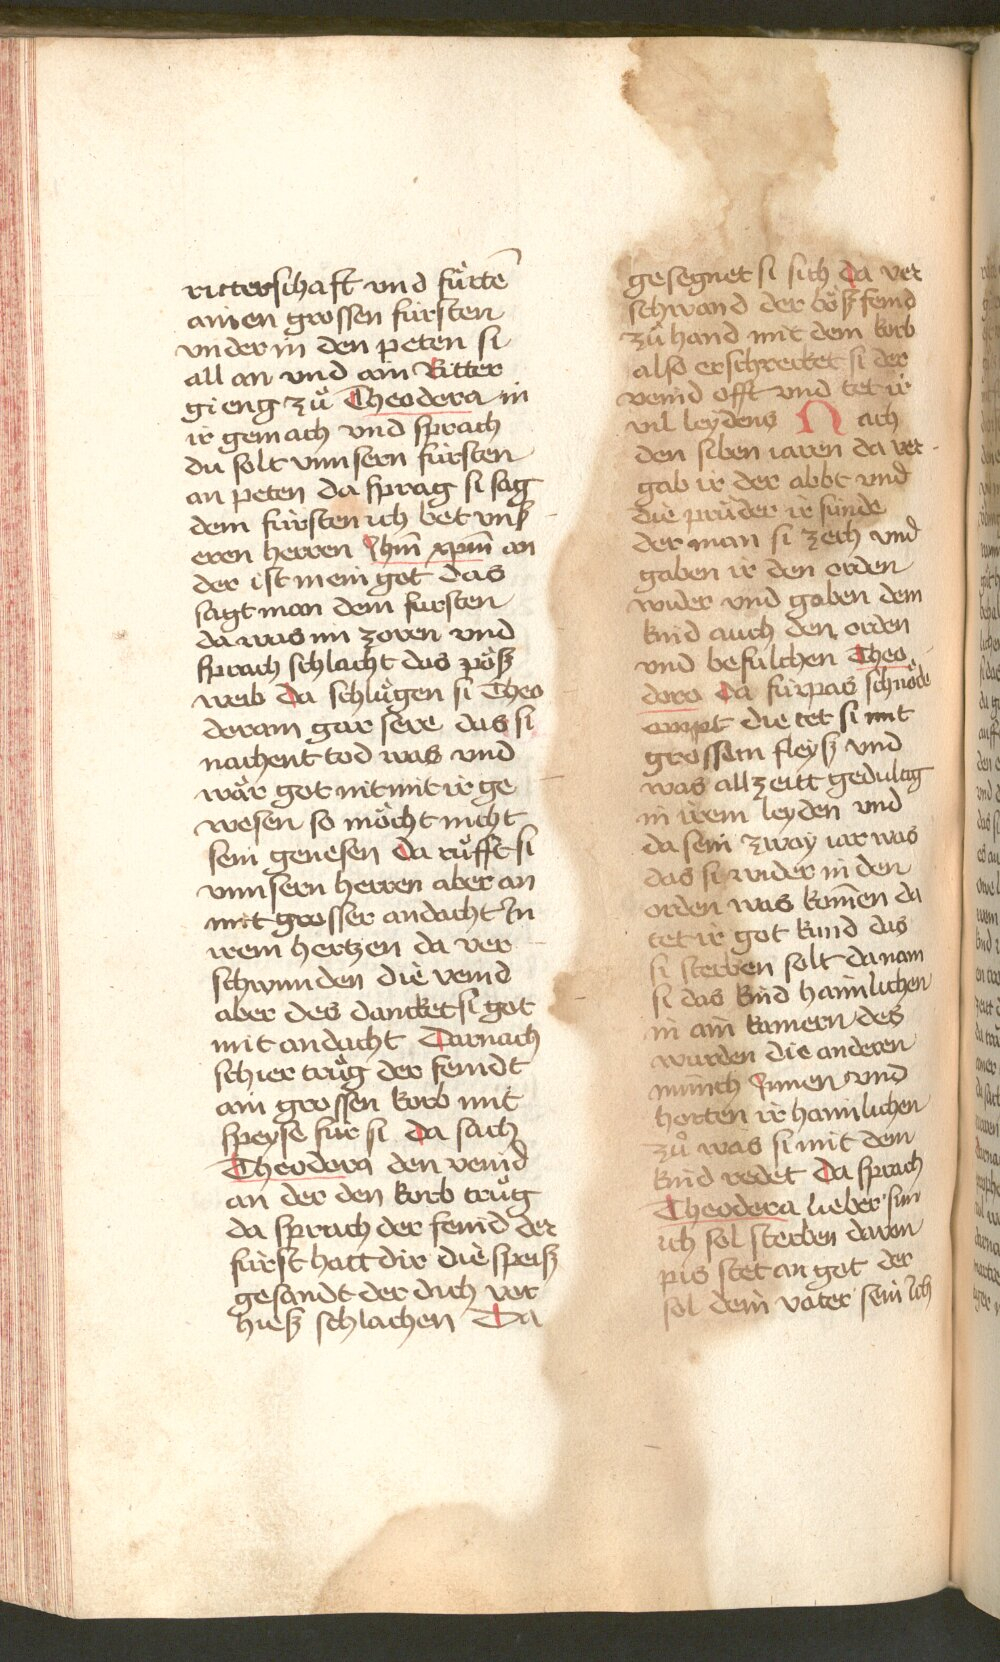 ritterschaft vnd fürtē
ainen grossen fürsten
vnder in den peten si
all an vnd ain Ritter
gieng zuͦ Theodera in
ir gemach vnd sprach
du solt vnnsern fürsten
an peten da sprag si sag
dem fürsten ich bet vnß
eren herren Jhm̄ xpm̄ an
der ist mein got das
sagt man dem fursten
da was im zoren vnd
sprach schlacht das pöß
weib Da schluͤgen si Theo
deram gar sere das si
nachent tod was vnd
wär got nit mit ir ge
wesen so möcht nicht
sein genesen Da ruͤfft si
vnnsern herren aber an
mit grosser andacht In
irem hertzen da ver
schwunden die veind
aber des dancket si got
mit andacht Darnach
schier truͤg der feindt
ain grossen korb mit
speyse für si Da sach
Theodora den veind
an der den korb truͤg
da sprach der feind der
fürst hatt dir die speiß
gesandt der dich ver
hieß schlachen Da
gesegnet si sich Da ver
schwand der böß feind
zuͦ hand mit dem korb
also erschrecket si der
veind offt vnd tet ir
vil leydens Nach
den siben iaren da ver
gab ir der abbt vnd
die prüder ir sünde
der man si zech vnd
gaben ir den orden
wider vnd gaben dem
kind auch den orden
vnd befulchen Theo
dora Da fürpas schnöde
ampt die tet si mit
grossem fleyß vnd
was allzeitt gedultig
in irem leyden vnd
da sein zway iar was
das si wider in den
orden was komen da
tet ir got kund das
si sterben solt da nam
si das kind haimlichen
in ain kamern des
wurden die anderen
münch Innen vnd
horten ir haimlichen
zuͦ was si mit dem
kind redet Da sprach
Theodera lieber sun
ich sol sterben davon
pis stet an got der
sol dein vater sein Ich